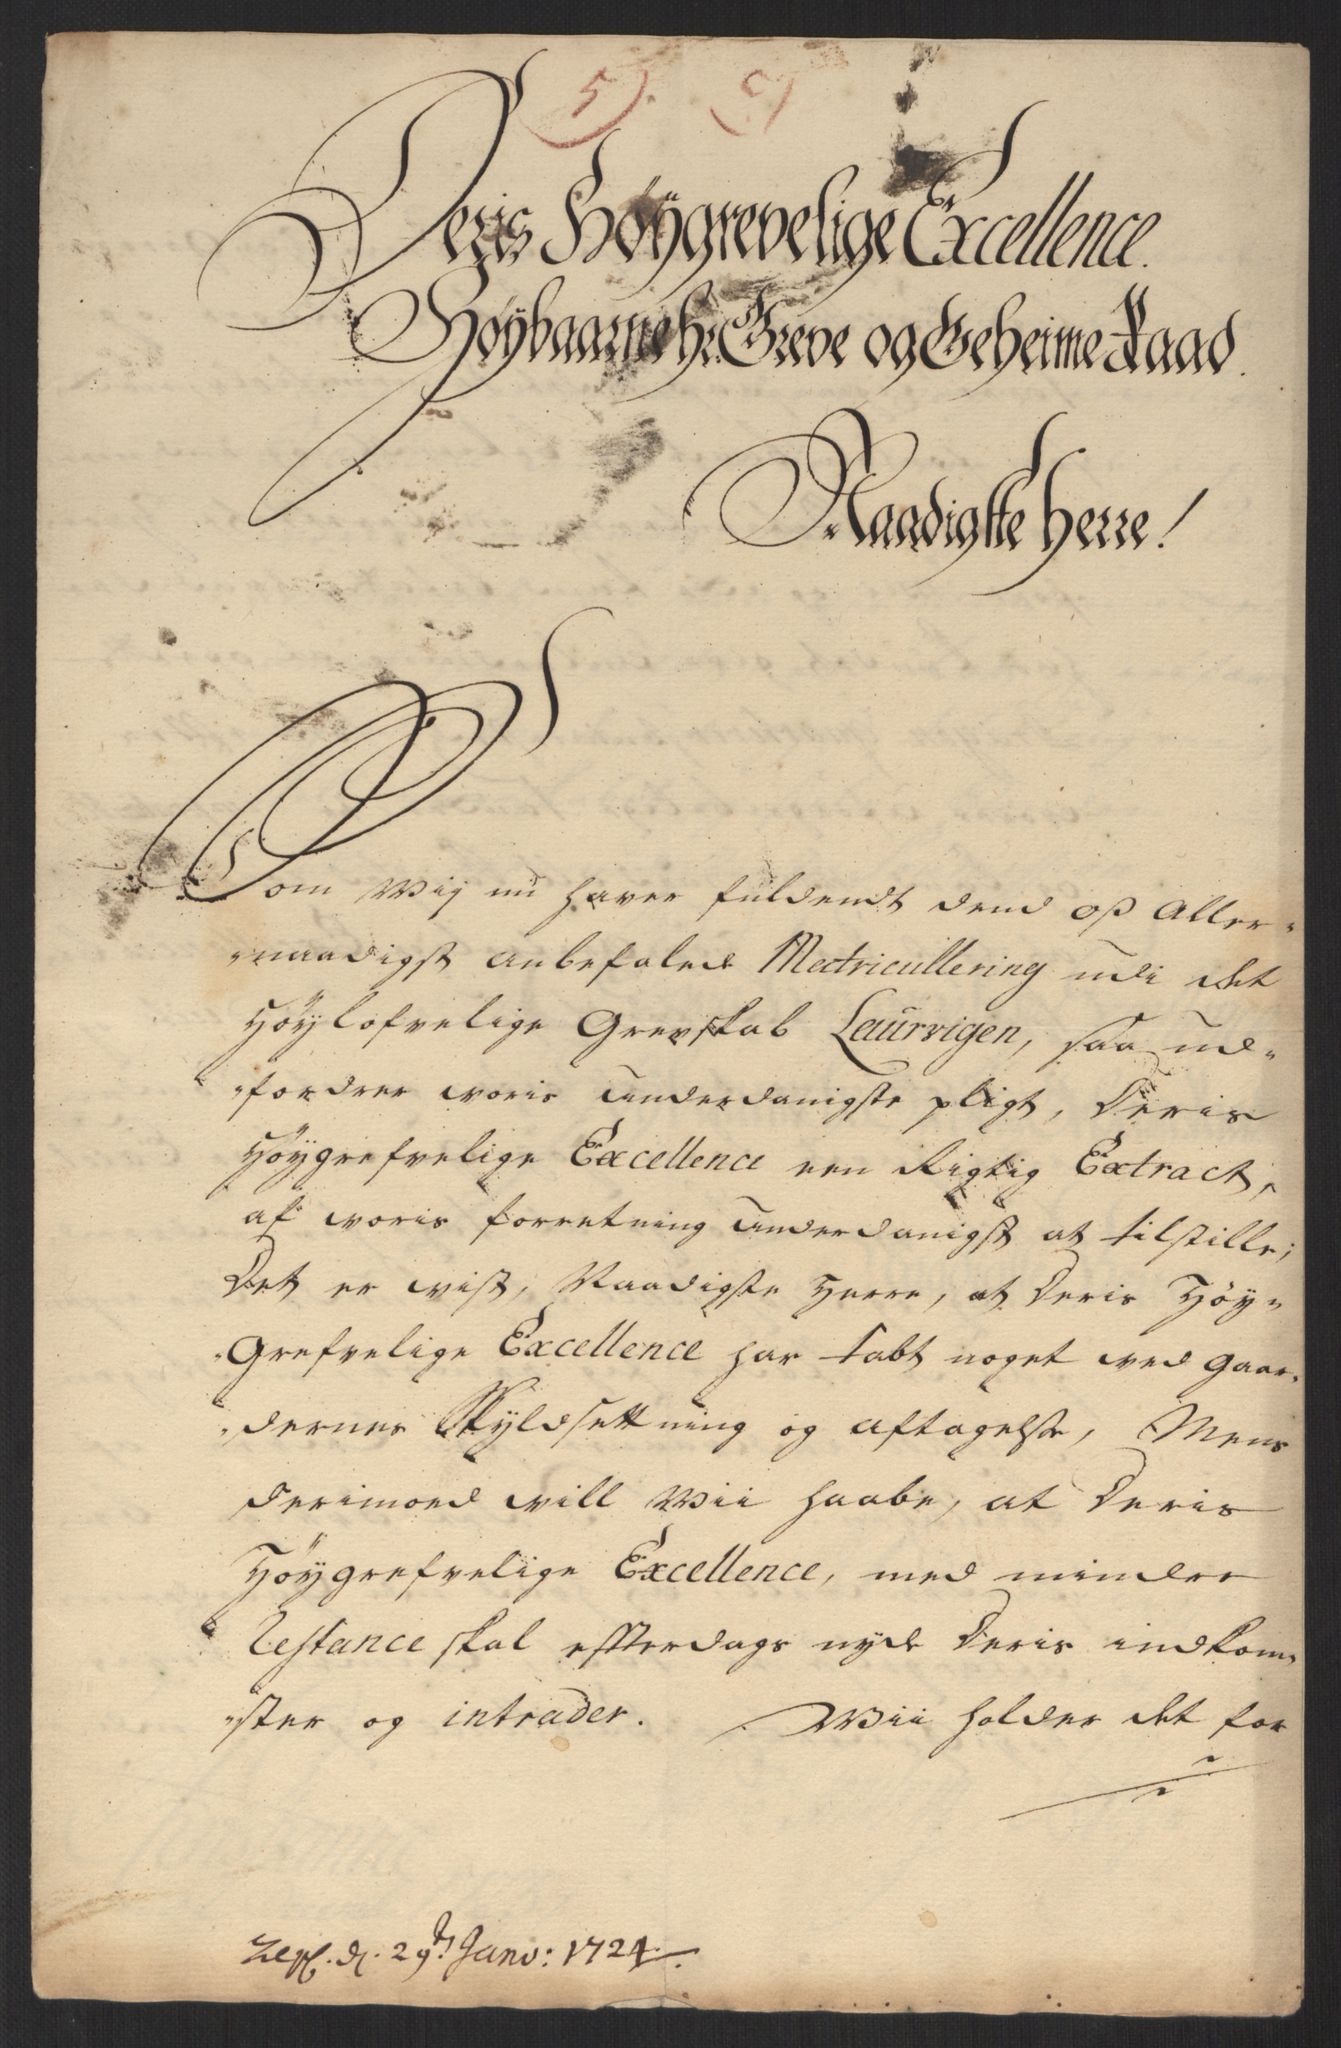 5). c)
Deris Høygrevelige Excellence.
Høybaarne hr. Greve og Geheime Raad.
Naadigste Herre!
Som Wij nu haver fuldendt dend oß Aller-
naadigst anbefalede Matricullering udi det
Høylofvelige Grevskab Laurvigen, saa ud-
fordrer voris underdanigste pligt, Deris
Høygrefvelige Excellence een Rigtig Extract,
af voris forretning underdanigst at tilstille;
Det er vist, Naadigste Herre, at Deris Høy-
Grefvelige Excellence har tabt noget ved gaar-
dernes Skyldsettning og aftagelse, Mens
derimoed vill Wii haabe, at Deris
Høygrefvelige Excellence, med mindre
Restance skal effterdags nyde Deris indkom-
ster og intrader. Wii holder det for
d. 29 Janv: 1724.